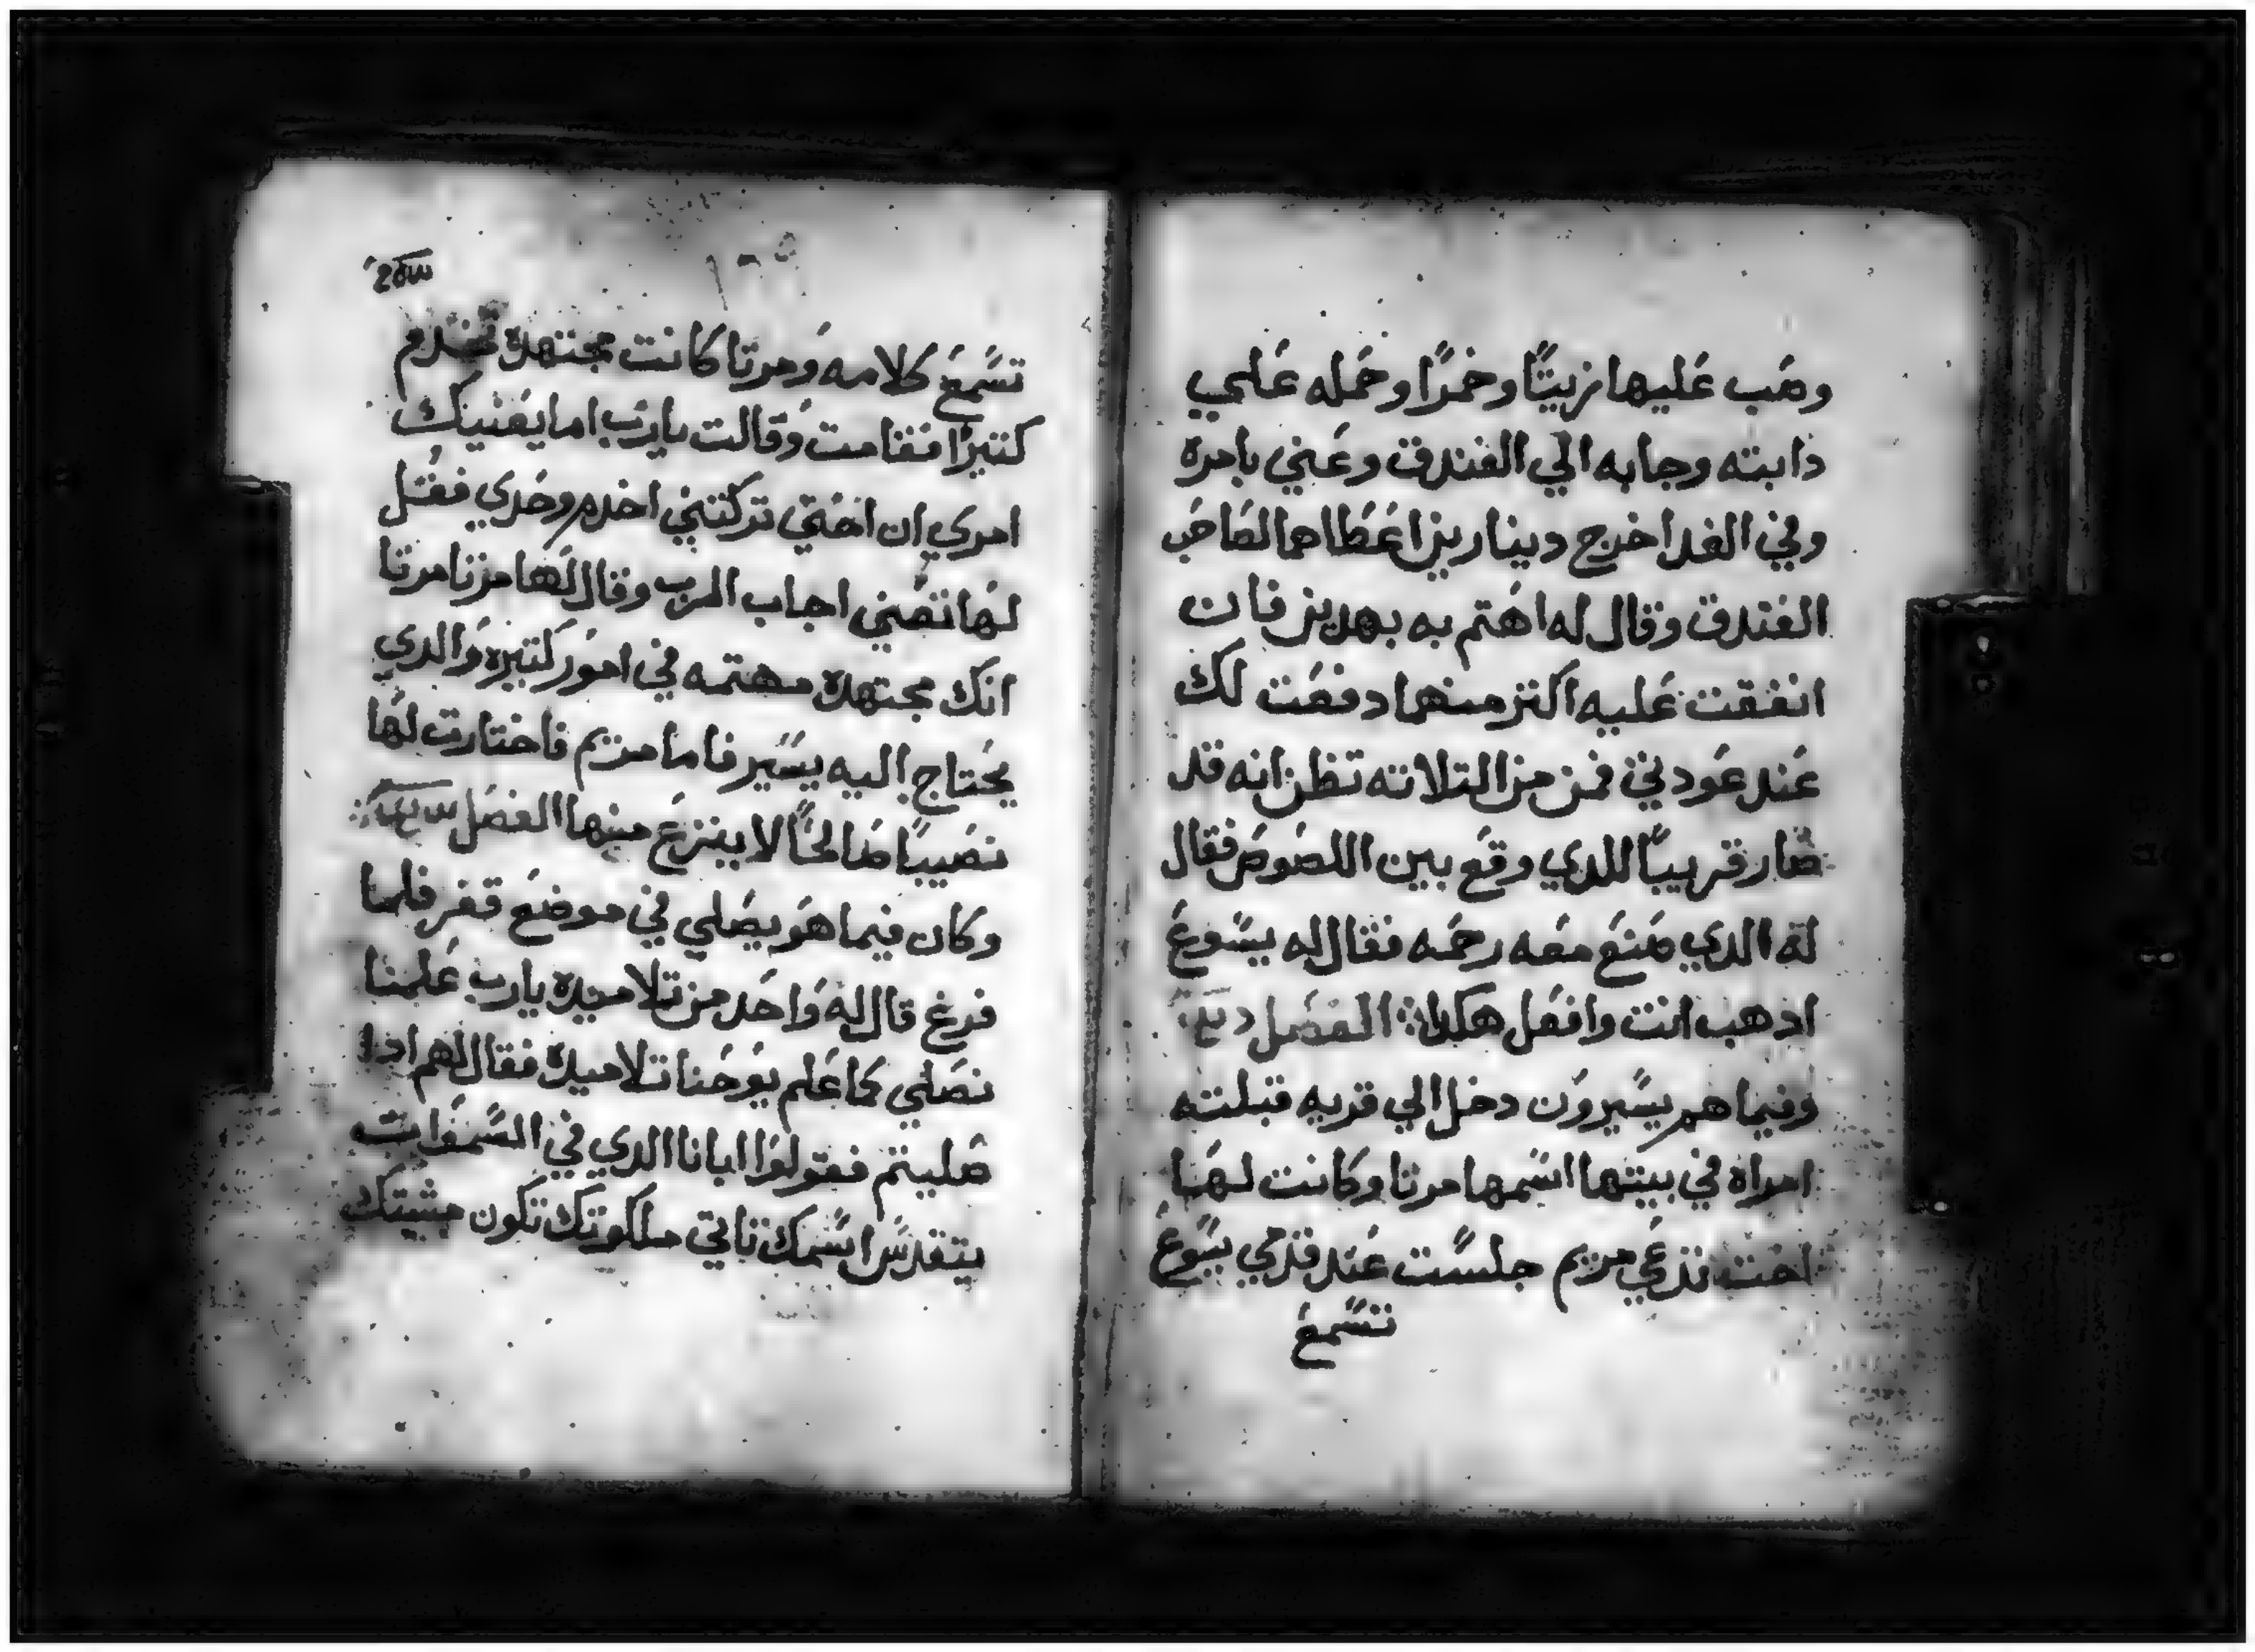 وصَب عَليها زيتًا وخمرًا وحمَله عَلي
دابته وجابه الي الفندق وعَني بامره
وفي الغد اخرج دينارين اعَطاهما لصَاحَب
الفندق وقال له اهَتم به بهدين فان
انفقت عَليه اكتر منهما دفعَت لك
عَند عَودتي فمن من التلاته تظن انه قد
صَار قريبًا للدي وقعَ بين اللصَوصَ فقال
له الدي صَنعَ معَه رحمَه فقال له يسَوعَ
ادهب انت وافعَل هكدا الفصَل
وفيما هم يسَيرون دخل الي قريه قبلته
امراه في بيتها اسَمها مرتا وكانت لهَا
اخت تدعَي مريم جلسَت عَند قدمي يسَوعَ
تسَمعَ
تسَمعَ كلامه ومرتا كانت مجتهده تخدم
كتيرًا فقامت وقالت يارَب اما يعَنيك
امري ان اختي تركتني اخدم وحَدي فقل
لهَا تعَيني اجاب الرب وقال لهَا مرتا مرتا
انك مجتهده مهتمه في امور كتيره والدي
يحَتاج اليه يسَير فاما مريم فاختارت لهَا
نصَيبًا صَالحًا لا ينزعَ منها الفصَل
وكان فيما هو يصَلي في موضعَ قفر فلما
فرغ قال له واحَد من تلاميده يارب عَلمنا
نصَلي كما عَلم يوحَنا تلاميده فقال لهم ادا
صَليتم فقولوا ابانا الدي في السَموات
يتقدسَ اسَمك تاتي ملكوتك تكون مشيتك